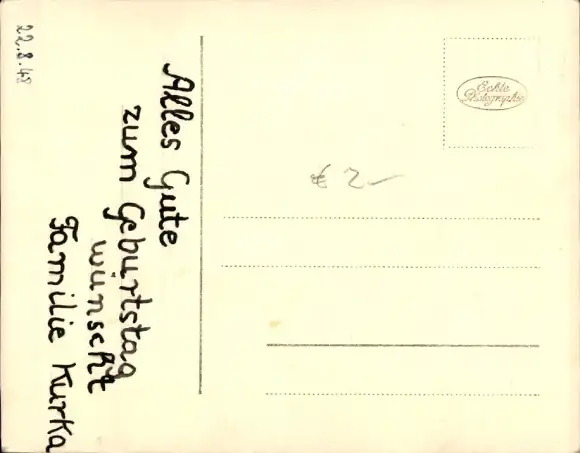 22.8.48
Alles Gute
zum Geburtstag
wünscht
Familie Kurka
Echte
Photographie
€ 2-